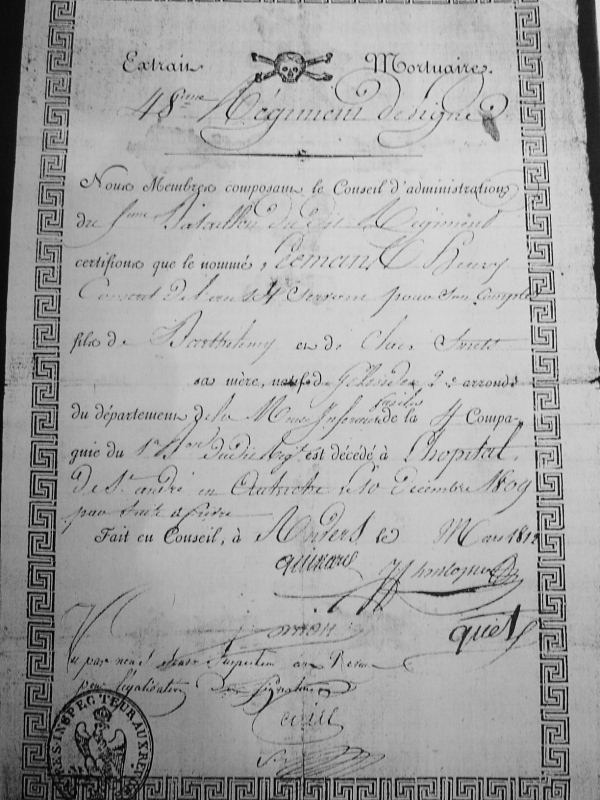 Extrait Mortuaire.
48ème Régiment de ligne
Nous Membres composant le Conseil d'administration
du 5me Bataillon du dit Régiment
certifions que le nommé, Lemans Henry
Conscrit de l'an 14 Servant pour Son Compte
fils de Barthelemy et de Claes
sa mère, natif de 2e arrondt
du département de la Meuse Inférieure fusilier de la 4 Compa-
gnie du 1er Bon dudit Regt est décédé à l'hopital
De St andré en Autriche le 10 Décembre 1809
par Suite de fievre
Fait en Conseil, à Anvers le Mars 1812
quiet
par nous Sous Inspecteur aux Revues
pour légalisation des Signatures
INSPECTEUR AUX REVUES